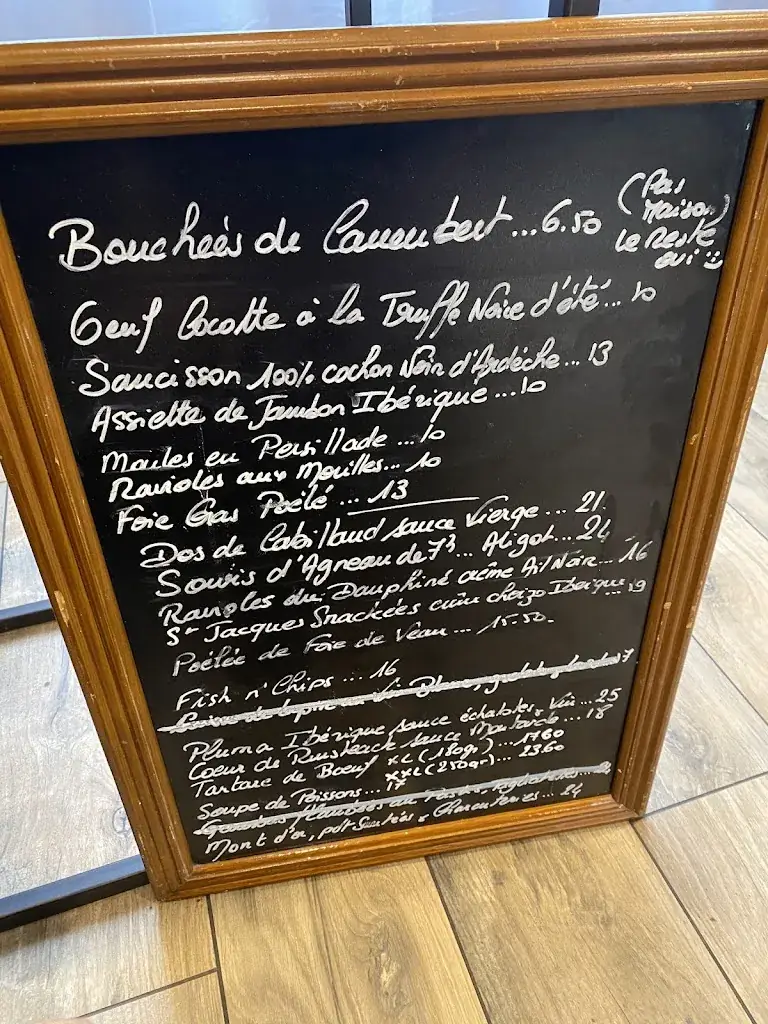 Bouchées de Camembert ... 6.50
(Pas
Maison)
Le Reste
oui
Oeuf Cocotte à la Truffe Noire d'été ... 10
Saucisson 100% cochon Noir d'Ardèche ... 13
Assiette de Jambon Ibérique ... 10
Moules en Persillade ... 10
Ravioles aux Morilles ... 10
Foie Gras Poêlé ... 13
Dos de Cabillaud sauce Vierge ... 21
Souris d'Agneau de 7h ... Aligot ... 24
Ravioles du Dauphiné crème Ail Noir ... 16
St Jacques Snackées crème chorizo Iberique ... 19
Poêlée de Foie de Veau ... 15.50
Fish n' Chips ... 16
Pluma Ibérique sauce échalotes Vin ... 25
Coeur de Rumsteack sauce Moutarde ... 18
Tartare de Boeuf XL (180gr) ... 17.60
XXL (250gr) ... 23.60
Soupe de Poissons ... 17
Mont d'or, pdt Sautées & Charcuteries ... 24